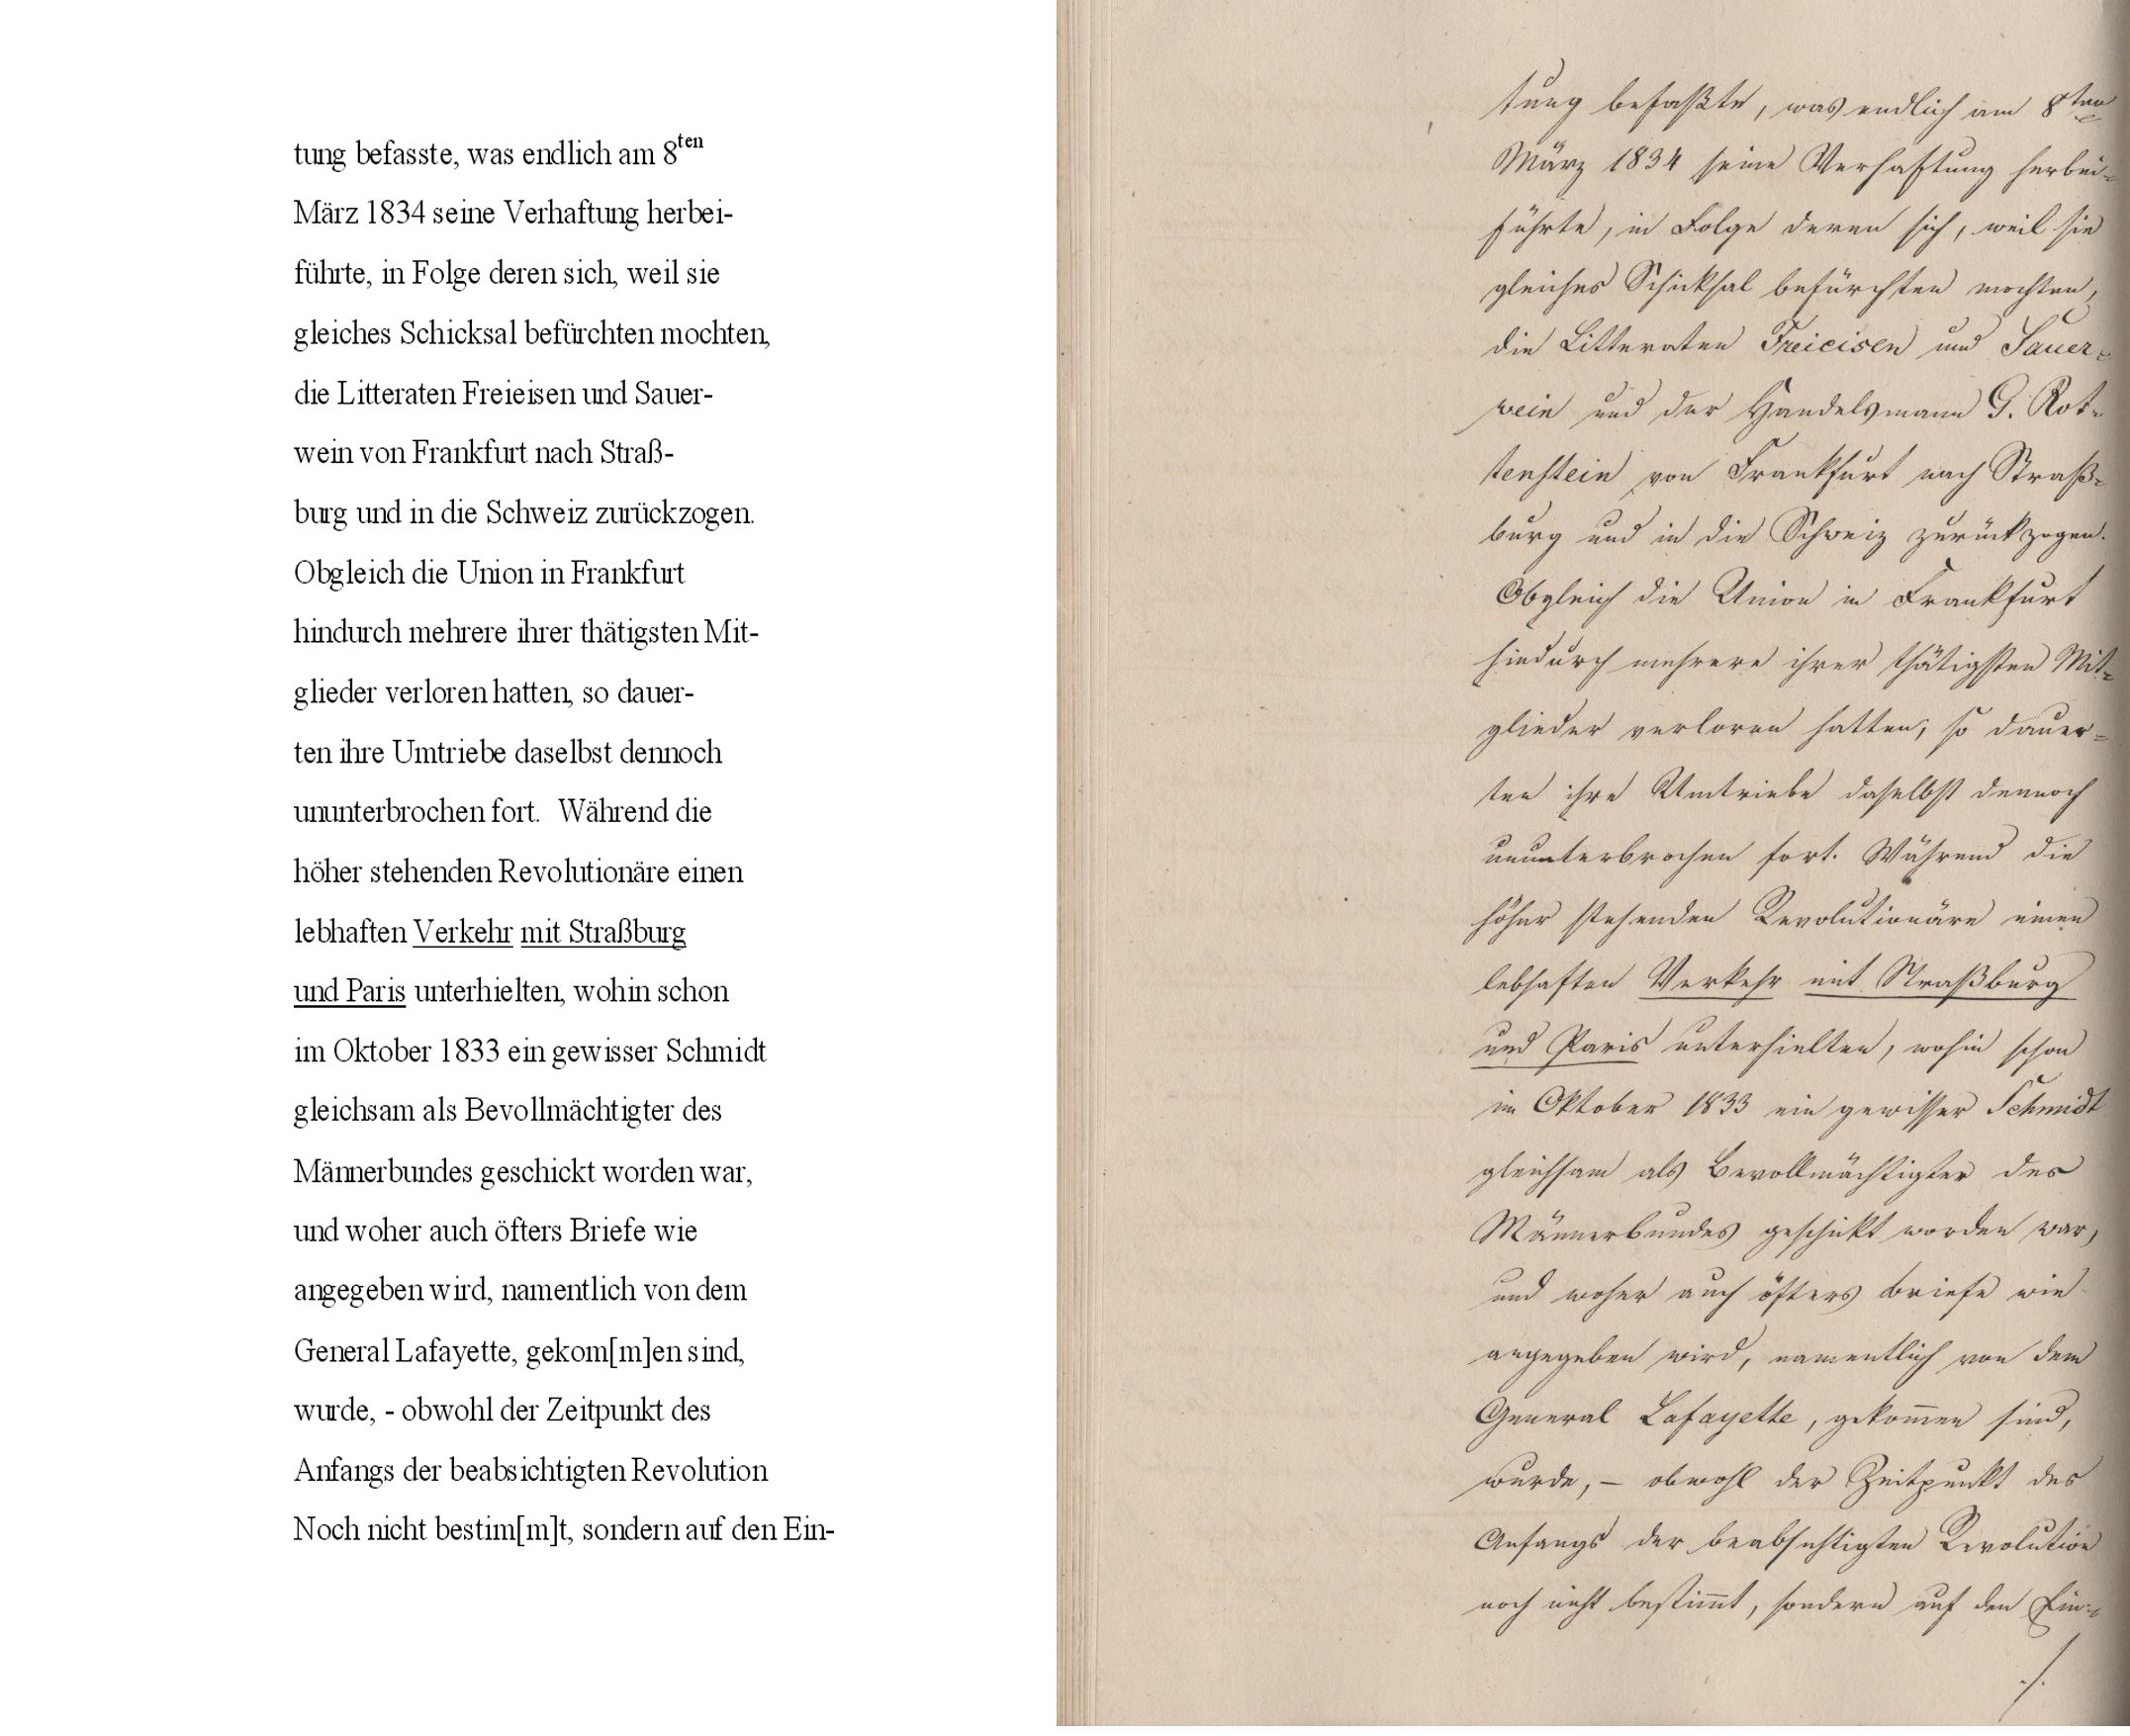 tung befasste, was endlich am 8ten
März 1834 seine Verhaftung herbei-
führte, in Folge deren sich, weil sie
gleiches Schicksal befürchten mochten,
die Litteraten Freieisen und Sauer-
wein von Frankfurt nach Straß-
burg und in die Schweiz zurückzogen.
Obgleich die Union in Frankfurt
hindurch mehrere ihrer thätigsten Mit-
glieder verloren hatten, so dauer-
ten ihre Umtriebe daselbst dennoch
ununterbrochen fort. Während die
höher stehenden Revolutionäre einen
lebhaften Verkehr mit Straßburg
und Paris unterhielten, wohin schon
im Oktober 1833 ein gewisser Schmidt
gleichsam als Bevollmächtigter des
Männerbundes geschickt worden war,
und woher auch öfters Briefe wie
angegeben wird, namentlich von dem
General Lafayette, gekom[m]en sind,
wurde, - obwohl der Zeitpunkt des
Anfangs der beabsichtigten Revolution
Noch nicht bestim[m]t, sondern auf den Ein-
tung befaßte, was endlich am 8ten
März 1834 seine Verhaftung herbei-
führte, in Folge deren sich, weil sie
gleiches Schicksal befürchten mochten,
die Litteraten Freieisen und Sauer-
wein und der Handelsmann G. Rot-
tenstein von Frankfurt nach Straß-
burg und in die Schweiz zurückzogen.
Obgleich die Union in Frankfurt
hiedurch mehrere ihrer thätigsten Mit-
glieder verloren hatten, so dauer-
ten ihre Umtriebe daselbst dennoch
ununterbrochen fort. Während die
höher stehenden Revolutionäre einen
lebhaften Verkehr mit Straßburg
und Paris unterhielten, wohin schon
im Oktober 1833 ein gewisser Schmidt
gleichsam als Bevollmächtigter des
Männerbundes geschickt worden war,
und woher auch öfters Briefe wie
angegeben wird, namentlich von dem
General Lafayette, gekom̅en sind,
wurde, – obwohl der Zeitpunkt des
Anfangs der beabsichtigten Revolution
noch nicht bestim̅t, sondern auf den Ein-
./.